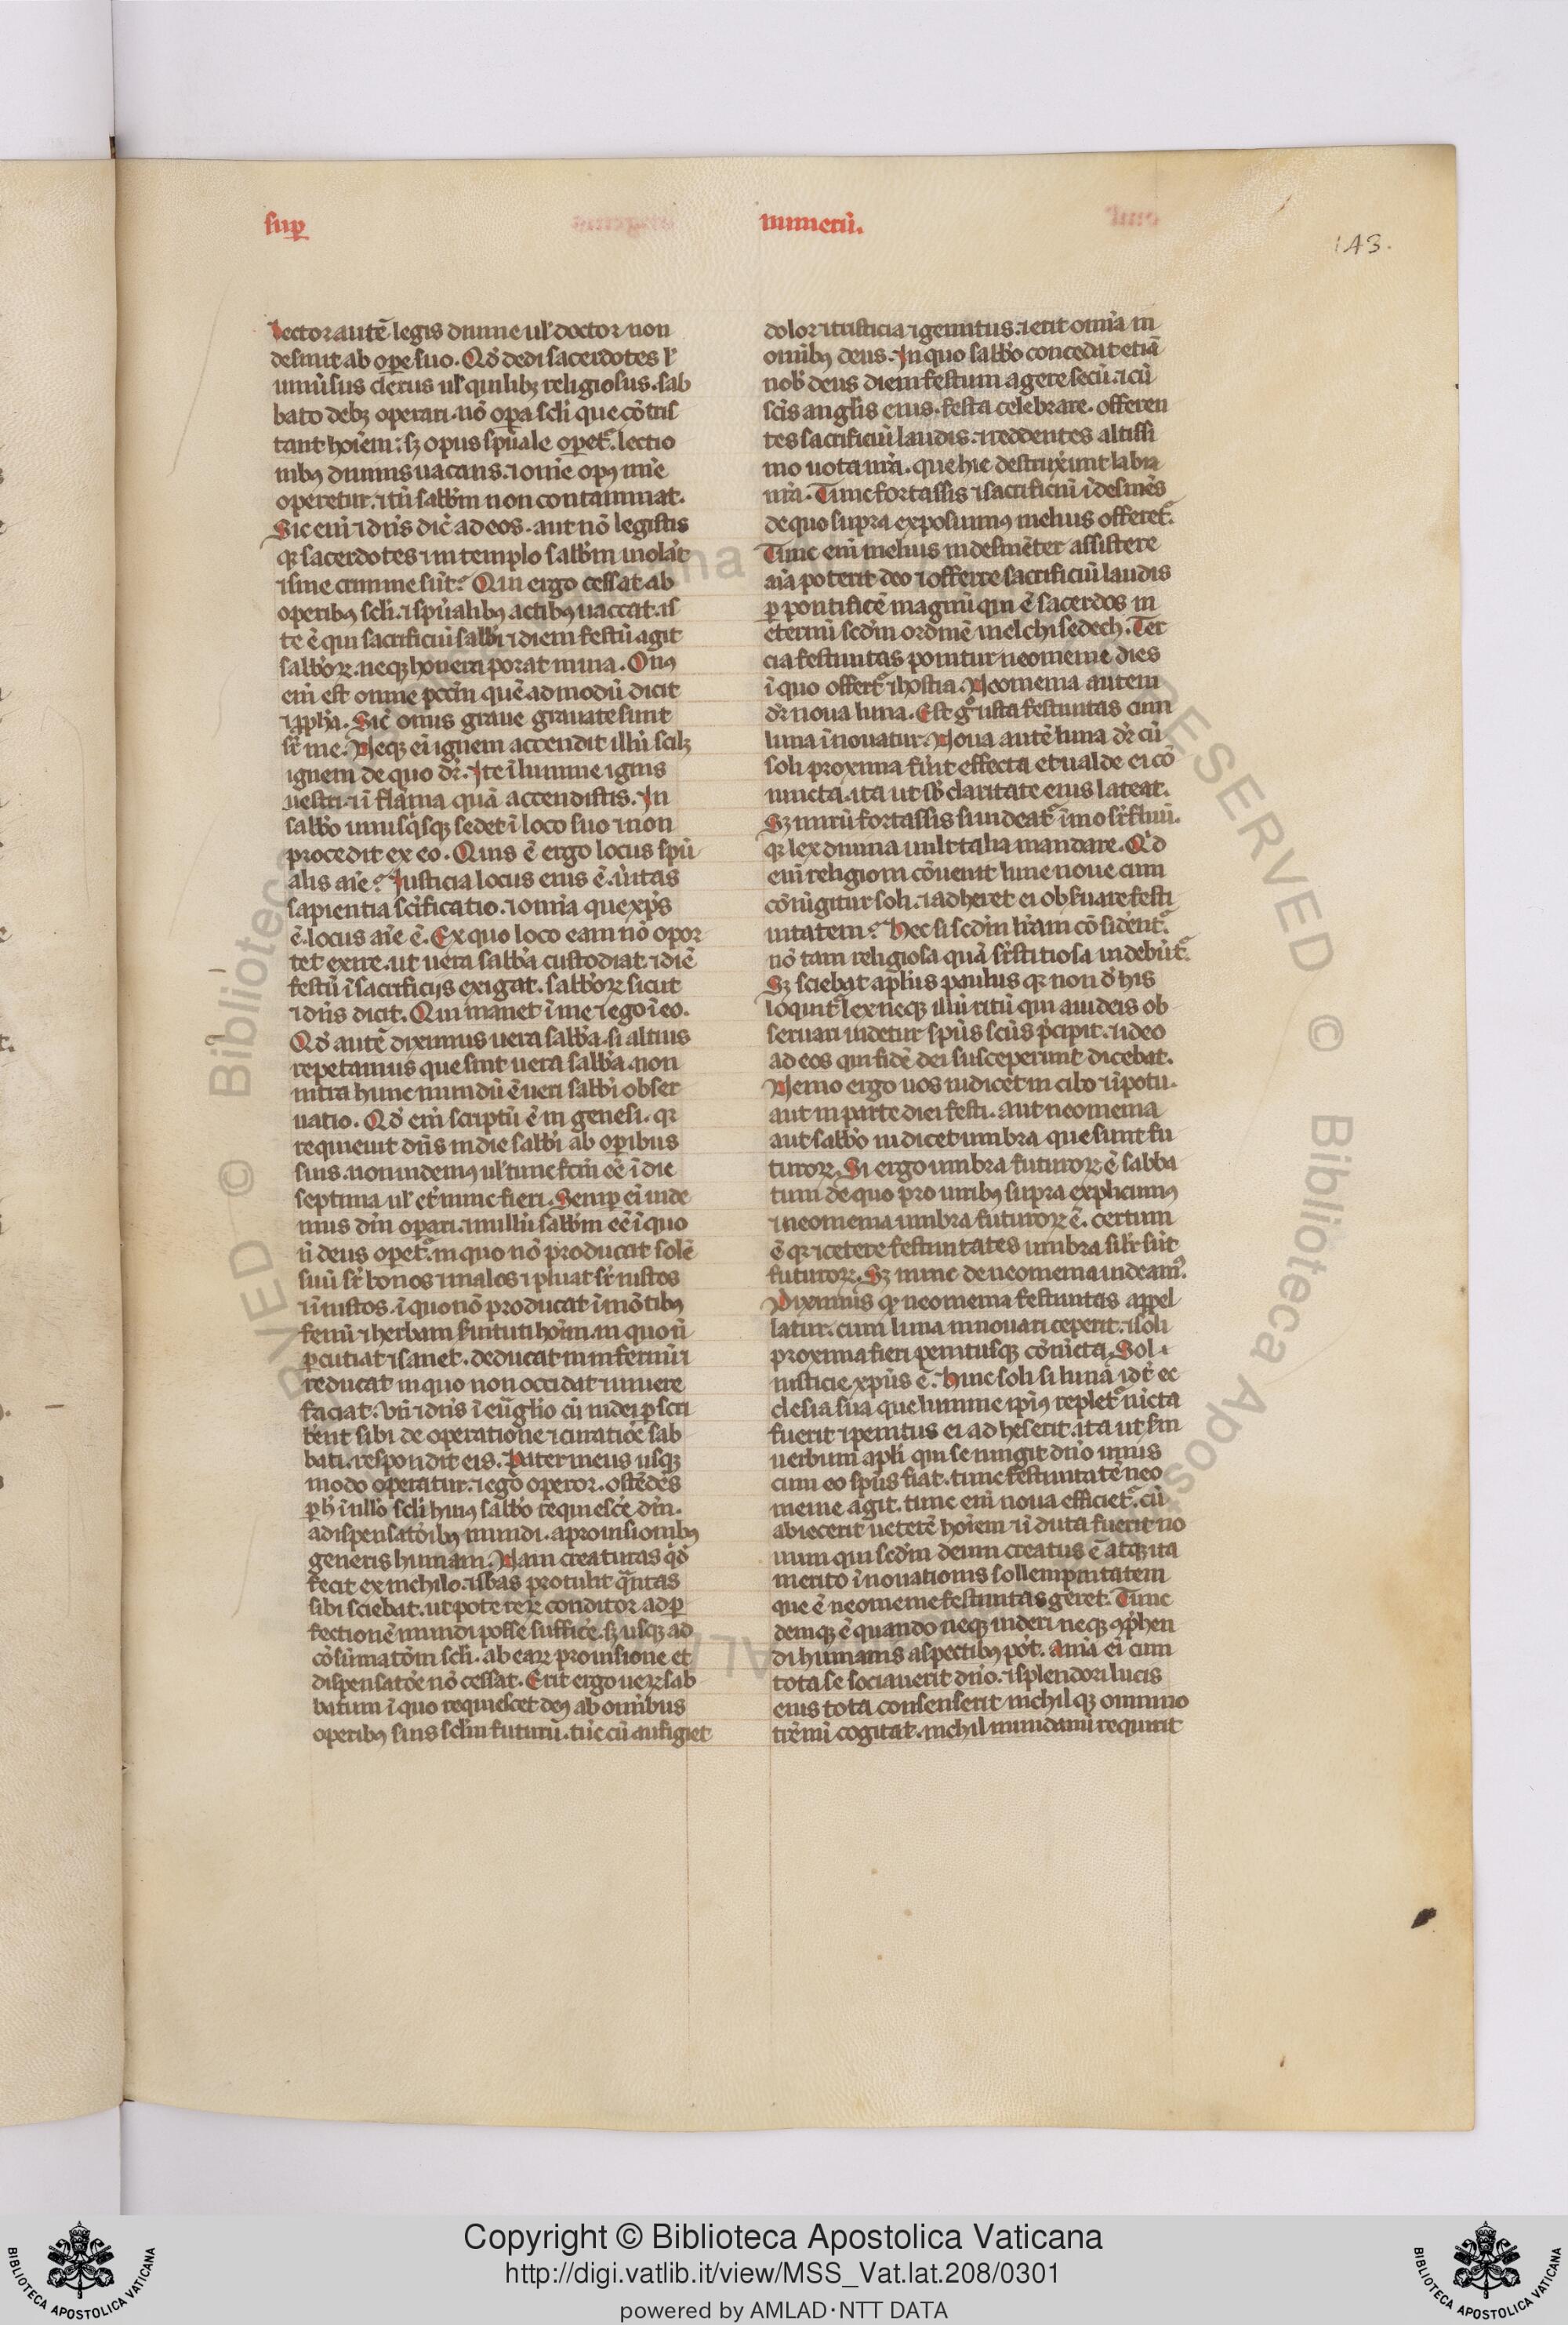 sup̱ numerū.
143.
lector autē legis diuine ul' doctor non
desinit ab oꝑe suo. Qd̓ dedi sacerdotes l'
uniuͥsus clerus ul' quilibꝫ religiosus. sab
bato debꝫ operari. nō oꝑa scl̓i que cōtris
tant hoīem: sꝫ opus spūale oꝑet᷑. lectio
nibꝰ diuinis uacans. ⁊ omīe opꝰ mīe
operetur. ⁊ tn̄ sabb̓m non contaminat.
Sic eni ⁊ dn̄s dic̄ ad eos. aut nō legistis
qꝛ sacerdotes ⁊ in templo sabb̓m uiolāt
⁊ sine crimine sūt? Qui ergo cessat ab
operibꝰ scl̓i. ⁊ spūalibꝰ actibꝰ uaccat. is
te ē qui sacrificiū sabb̓i ⁊ diem festū agit
sabb̓oꝝ. neqꝫ honera porat in uia. Onꝰ
eni est omne pcc̄m quēadmodū dicit
⁊ ꝓph̓a. Sic̄ onus graue grauate sunt
sr̄ me. Neqꝫ eī ignem accendit illū scilꝫ
ignem de quo dr̄. Ite ī lumine ignis
uestri. ⁊ ī flāma quā accendistis. In
sabb̓o unusq̓sqꝫ sedet ī loco suo ⁊ non
procedit ex eo. Quis ē ergo locus spū
alis aīe? Iusticia locus eius ē. ūitas
sapientia sc̄ificatio. ⁊ omīa que xp̄s
ē. locus aīe ē. Ex quo loco eam nō opor
tet exire. ut uera sabb̓a custodiat ⁊ diē
festū ī sacrificijs exigat. sabb̓oꝝ sicut
⁊ dn̄s dicit. Qui manet ī me ⁊ ego ī eo.
Qd̓ autē diximus uera sabb̓a. si altius
repetamus que sint uera sabb̓a. non
intra hunc mundū ē ueri sabb̓i obser
uatio. Qd̓ eni scriptū ē in genesi. qꝛ
requieuit dn̄s in die sabb̓i ab oꝑibus
suis. non uidemꝰ ul' tunc fc̄m eē ī die
septima ul' et̓ nunc fieri. Semꝑ eī uide
mus dm̄ oꝑari. ⁊ nullū sabb̓m eē ī quo
n̄ deus oꝑet᷑. in quo nō producat solē
suū sr̄ bonos ⁊ malos ⁊ pluat sr̄ iustos
⁊ īiustos. ī quo nō producat ī mōtibꝰ
fenū ⁊ herbam seruituti hoīm. in quo n̄
ꝑcutiat ⁊ sanet. deducat in infernū ⁊
reducat in quo non occidat ⁊ uiuere
faciat. Vn̄ ⁊ dn̄s ī eūglio cū iudei ꝑscri
b̓ent sibi de operatione ⁊ curatiōe sab
bati. respondit eis. Pater meus usqꝫ
modo operatur. ⁊ ego operor. ostēdēs
ꝑ h̓ ī nullo scl̓i huiꝰ sabb̓o requiesc̄e dm̄.
a dispensatōibꝰ mundi. a prouisionibꝰ
generis humani. Nam creaturas q̓d̓
fecit ex nichilo. ⁊ sb̄as protulit q̄ntas
sibi sciebat. ut pote reꝝ conditor ad ꝑ
fectionē mundi posse suffic̄e. sꝫ usqꝫ ad
cōsumatōm scl̓i. ab eaꝝ prouisione et
dispensatōe nō cessat. Erit ergo ueꝝ sab
batum ī quo requiescet deꝰ ab omībus
operibꝰ suis scl̓m futurū. tūc cū aufugiet
dolor ⁊ tristicia ⁊ gemitus. ⁊ erit omīa in
omībꝰ deus. In quo sabb̓o concedat etiā
nob̓ deus diem festum agere secū. ⁊ cū
sc̄is angl̓is eius. festa celebrare. offeren
tes sacrificiū laudis. ⁊ reddentes altissi
mo uota nr̄a. que hic destruxerunt labia
nr̄a. Tunc fortassis ⁊ sacrificiū īdesinēs
de quo supra exposuimꝰ melius offeret᷑.
Tunc eni melius indesinēter assistere
aīa poterit deo ⁊ offerre sacrificiū laudis
ꝑ pontificē magnū qui ē sacerdos in
eternū scd̓m ordinē melchisedech. Ter
cia festiuitas ponitur neomenie dies
ī quo offert᷑ ⁊ hostia. Neomenia autem
dr̄ noua luna. Est gͦ ista festiuitas cum
luna īnouatur. Noua autē luna dr̄ cū
soli proxima fuīt effecta et ualde ei cō
iuncta. ita ut sb̓ claritate eius lateat.
Sꝫ mirū fortassis suūdeat᷑ īmo sr̄fluū.
qꝛ lex diuina uult talia mandare. Qd̓
eni religioni cōuenit lune noue cum
cōiūgitur soli. ⁊ adheret ei obseruare festi
uitatem? Hec si scd̓m lr̄am cōsiderent᷑
nō tam religiosa quā sr̄stitiosa uidebūt᷑.
Sꝫ sciebat apl̓us paulus qꝛ non d̓ his
loquit᷑ lex neqꝫ illū ritū qui a iudeis ob
seruari uidetur spūs sc̄us p̄cipit. ⁊ ideo
ad eos qui fidē dei susceperunt dicebat.
Nemo ergo uos iudicet in cibo ⁊ ī potu.
aut in parte diei festi. aut neomenia
aut sabb̓o iudicet umbra que sunt fu
turoꝝ. Si ergo umbra futuroꝝ ē sabba
tum de quo pro uiribꝰ supra explicuimꝰ
⁊ neomenia umbra futuroꝝ ē. certum
ē qꝛ ⁊ cetere festiuitates umbra silr̄ sūt
futuroꝝ. Sꝫ nunc de neomenia uideamꝰ.
Diximus qꝛ neomenia festiuitas appel
latur. cum luna innouari ceperit. ⁊ soli
proxima fieri penitusqꝫ cōiūcta. Sol
iusticie xpūs ē. Huic soli si luna ⁊ dr̄ ec
clesia sua que lumine ipiꝰ replet᷑ iūcta
fuerit ⁊ penitus ei adheserit. ita ut scdm
uerbum apl̓i qui se iungit dn̄o unus
cum eo spūs fiat. tunc festiuitatē neo
menie agit. tunc eni noua efficiet᷑. cū
abiecerit ueterē hoīem ⁊ īduta fuerit no
uum qui scd̓m deum creatus ē atqꝫ ita
merito īnouationis sollempnitatem
que ē neomenie festiuitas geret. Tunc
deniqꝫ ē quando neqꝫ uideri neqꝫ ꝯp̄hen
di humanis aspectibꝰ pōt. Anīa eī cum
tota se sociauerit dn̄o. ⁊ splendori lucis
eius tota consenserit nichilqꝫ omnino
tr̄enū cogitat. nichil mundanū requirit
Copyright © Biblioteca Apostolica Vaticana
http://digi.vatlib.it/view/MSS_Vat.lat.208/0301
powered by AMLAD·NTT DATA
BIBLIOTECA APOSTOLICA VATICANA
BIBLIOTECA APOSTOLICA VATICANA